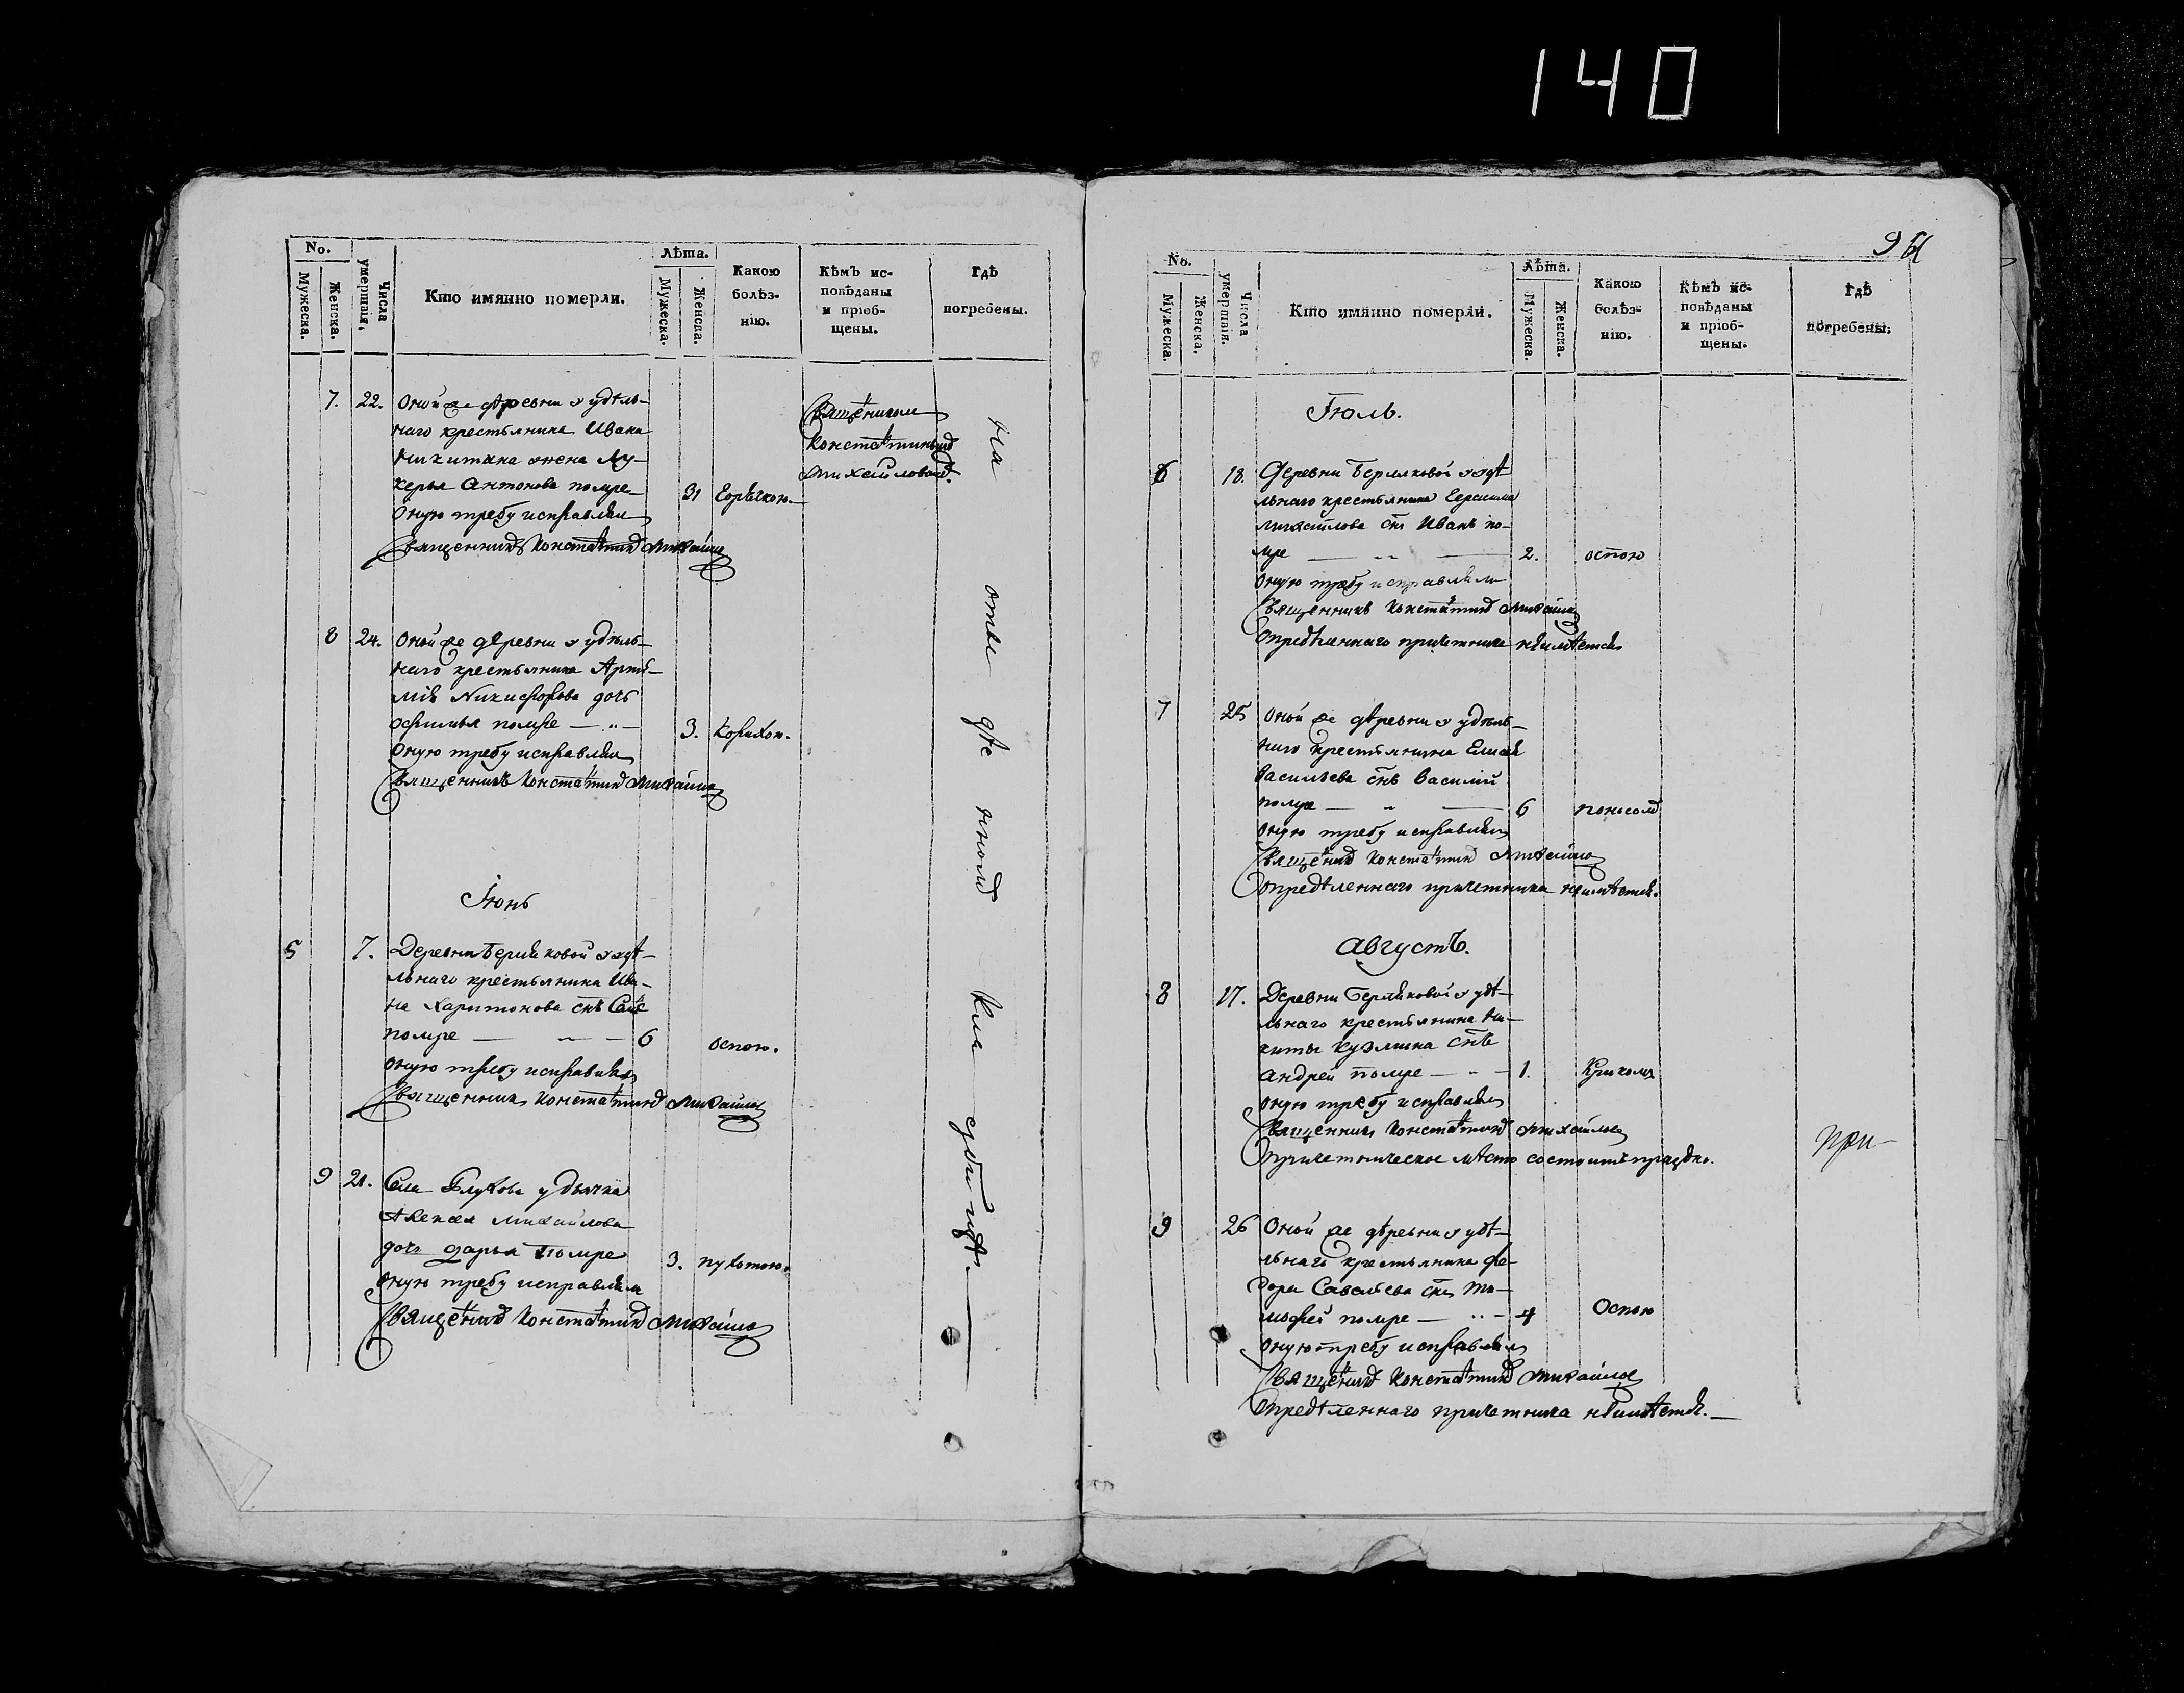 140
No.
Мужеска.
Женска.
Числа умершія,
Кто имянно померли.
Лѣта.
Мужеска.
Женска.
Какою
болѣз-
нію.
Кѣмъ ис-
повѣданы
и пріоб-
щены.
Гдѣ
погребены.
7. 22. Оной же деревни удѣль-
наго крестьянина Ивана
Никитина жена Лу-
керья Антонова помре
31 Горячкою.
Священникомъ
Константиномъ
Михайловымъ.
Оную требу исправлялъ
Священникъ Константинъ Михайловъ
8 24. Оной же деревни удѣль-
наго крестьянина Арте-
мія Никифорова дочь
помре 3. Корихою.
Оную требу исправлялъ
Священникъ Константинъ Михайловъ
Іюнь
5 7. Деревни Беряковой удѣ-
льнаго крестьянина Ива-
на Харитонова снъ
помре 6 оспою.
Оную требу исправлялъ
Священникъ Константинъ Михайловъ
9 21. Села Глухова у дьячка
Алексея Михайлова
дочь Дарья помре 3. пухотою.
Оную требу исправлялъ
Священникъ Константинъ Михайловъ
На
No.
Мужеска.
Женска.
Числа умершія.
Кто имянно померли.
Лѣта.
Мужеска.
Женска.
Какою
болѣз-
нію.
Кѣмъ ис-
повѣданы
и пріоб-
щены.
Гдѣ
погребены.
Іюль.
6 18. Деревни Беряковой удѣ-
льнаго крестьянина Герасима
Михайлова снъ Иванъ по-
мре 2. оспою
Оную требу исправлялъ
Священникъ Константинъ Михайловъ
Опредѣленнаго причетника неимѣется
7 25 Оной же деревни удѣль-
наго крестьянина Елисея
Васильева снъ Василій
помре 6 поносомъ
Оную требу исправлялъ
Священникъ Константинъ Михайловъ
Опредѣленнаго причетника неимѣется.
Августъ.
8 17. Деревни Беряковой удѣ-
льнаго крестьянина Ни-
киты Кузмина снъ
Андрей помре 1. Крикомъ
Оную требу исправлялъ
Священникъ Константинъ Михайловъ
Причетническое мѣсто состоитъ праздно.
При-
9 26 Оной же деревни удѣ-
льнаго крестьянина Фе-
дора Савельева снъ Ти-
мофей помре 4 Оспою
Оную требу исправлялъ
Священникъ Константинъ Михайловъ
Опредѣленнаго причетника неимѣется.